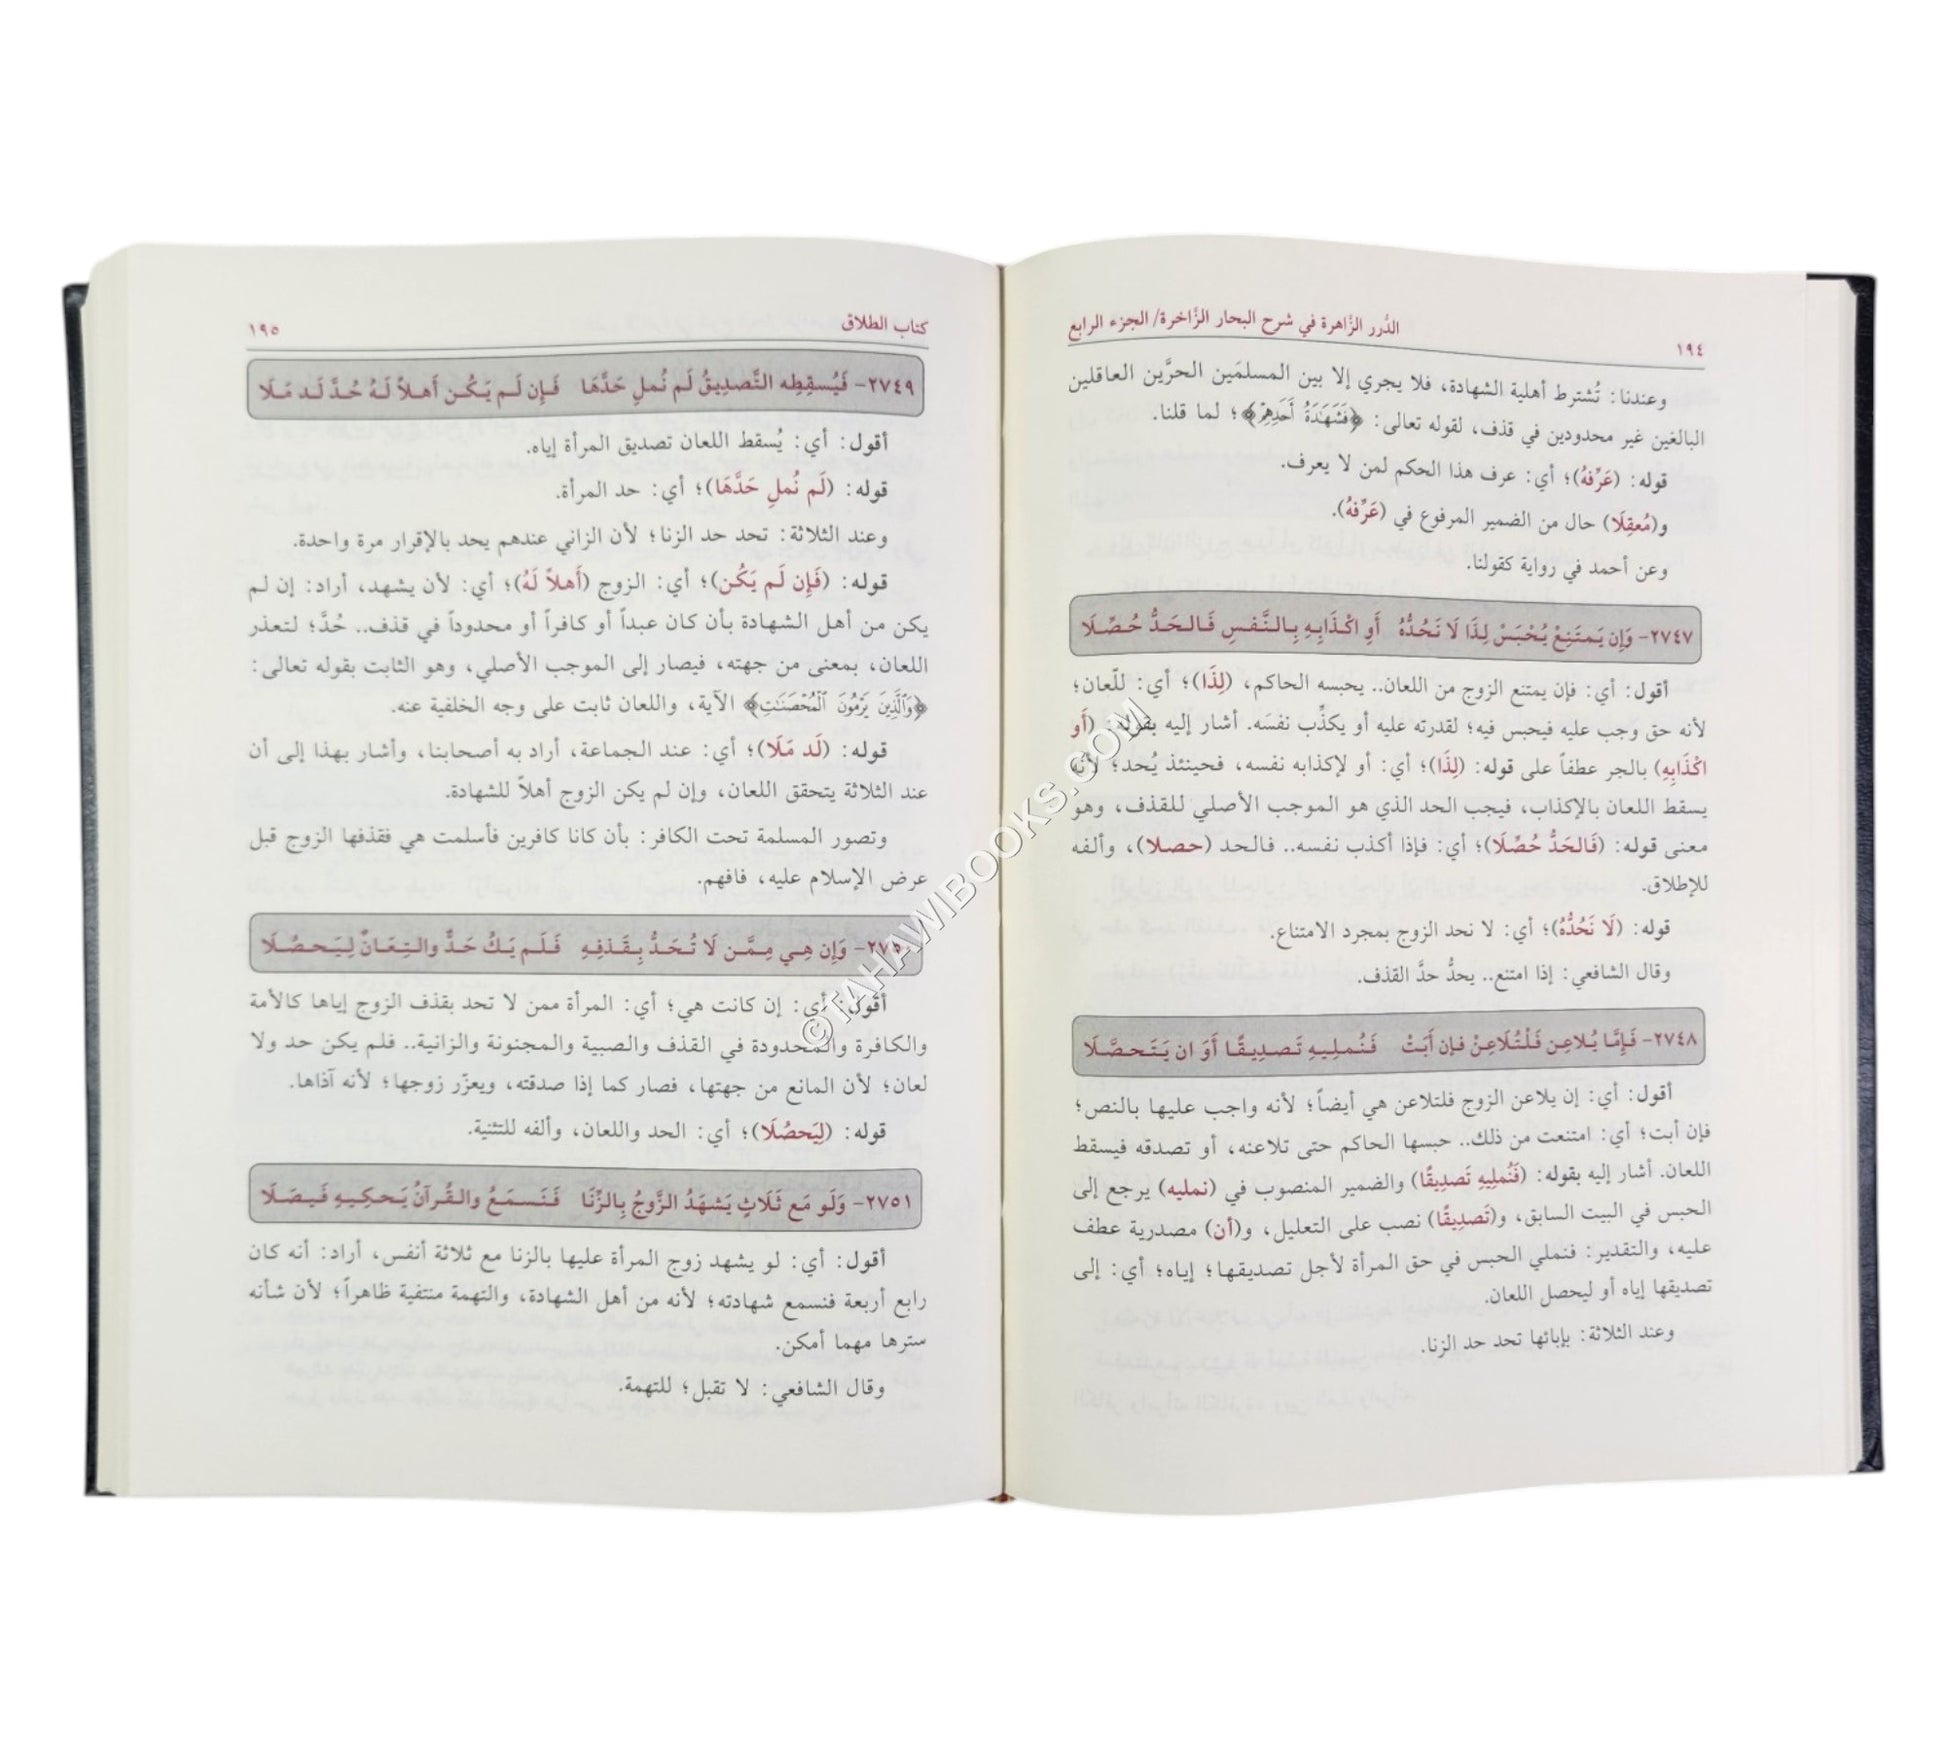 الدُّرر الزَّاهرة في شرح البحار الزَّاخرة/ الجزء الرابع
١٩٤
وعندنا: تُشترط أهلية الشهادة، فلا يجري إلا بين المسلمَين الحرَّين العاقلين
البالغين غير محدودين في قذف، لقوله تعالى: ﴿فَشَهَٰدَةُ أَحَدِهِمْ﴾؛ لما قلنا.
قوله: (عَرِّفهُ)؛ أي: عرف هذا الحكم لمن لا يعرف.
و(مُعقِلَا) حال من الضمير المرفوع في (عَرِّفهُ).
وعن أحمد في رواية كقولنا.
٢٧٤٧- وَإِن يَمتَنِعْ يُحْبَسْ لِذَا لَا نَحُدُّهُ أَوِ اكْذَابِهِ بِالنَّفسِ فَالحَدُّ حُصِّلَا
أقول: أي: فإن يمتنع الزوج من اللعان.. يحبسه الحاكم، (لِذَا)؛ أي: للّعان؛
لأنه حق وجب عليه فيحبس فيه؛ لقدرته عليه أو يكذِّب نفسَه. أشار إليه بقوله: (أَو
اكْذَابِهِ) بالجر عطفاً على قوله: (لِذَا)؛ أي: أو لإكذابه نفسه، فحينئذ يُحد؛ لأنه
يسقط اللعان بالإكذاب، فيجب الحد الذي هو الموجب الأصلي للقذف، وهو
معنى قوله: (فَالحَدُّ حُصِّلَا)؛ أي: فإذا أكذب نفسه.. فالحد (حصلا)، وألفه
للإطلاق.
قوله: (لَا نَحُدُّهُ)؛ أي: لا نحد الزوج بمجرد الامتناع.
وقال الشافعي: إذا امتنع.. يحدُّ حدَّ القذف.
٢٧٤٨- فَإِمَّا يُلَاعِن فَلْتُلَاعِنْ فإن أَبَتْ فَنُملِيهِ تَصدِيقًا أَوَ ان يَتَحصَّلَا
أقول: أي: إن يلاعن الزوج فلتلاعن هي أيضاً؛ لأنه واجب عليها بالنص؛
فإن أبت؛ أي: امتنعت من ذلك.. حبسها الحاكم حتى تلاعنه، أو تصدقه فيسقط
اللعان. أشار إليه بقوله: (فَنُملِيهِ تَصدِيقًا) والضمير المنصوب في (نمليه) يرجع إلى
الحبس في البيت السابق، و(تَصدِيقًا) نصب على التعليل، و(أن) مصدرية عطف
عليه، والتقدير: فنملي الحبس في حق المرأة لأجل تصديقها؛ إياه؛ أي: إلى
تصديقها إياه أو ليحصل اللعان.
وعند الثلاثة: بإبائها تحد حد الزنا.
كتاب الطلاق
١٩٥
٢٧٤٩- فَيُسقِطِه التَّصدِيقُ لَم نُملِ حَدَّهَا فَإِن لَم يَكُن أَهلاً لَهُ حُدَّ لَد مَلَا
أقول: أي: يُسقط اللعان تصديق المرأة إياه.
قوله: (لَم نُملِ حَدَّهَا)؛ أي: حد المرأة.
وعند الثلاثة: تحد حد الزنا؛ لأن الزاني عندهم يحد بالإقرار مرة واحدة.
قوله: (فَإِن لَم يَكُن)؛ أي: الزوج (أَهلاً لَهُ)؛ أي: لأن يشهد، أراد: إن لم
يكن من أهل الشهادة بأن كان عبداً أو كافراً أو محدوداً في قذف.. حُدَّ؛ لتعذر
اللعان، بمعنى من جهته، فيصار إلى الموجب الأصلي، وهو الثابت بقوله تعالى:
﴿وَٱلَّذِينَ يَرْمُونَ ٱلْمُحْصَنَٰتِ﴾ الآية، واللعان ثابت على وجه الخلفية عنه.
قوله: (لَد مَلَا)؛ أي: عند الجماعة، أراد به أصحابنا، وأشار بهذا إلى أن
عند الثلاثة يتحقق اللعان، وإن لم يكن الزوج أهلاً للشهادة.
وتصور المسلمة تحت الكافر: بأن كانا كافرين فأسلمت هي فقذفها الزوج قبل
عرض الإسلام عليه، فافهم.
٢٧٥٠- وَإِن هِي مِمَّن لَا تُحَدُّ بِقَذفِهِ فَلَم يَكُ حَدٌّ والتِعَانٌ لِيَحصُلَا
أقول: أي: إن كانت هي؛ أي: المرأة ممن لا تحد بقذف الزوج إياها كالأمة
والكافرة والمحدودة في القذف والصبية والمجنونة والزانية.. فلم يكن حد ولا
لعان؛ لأن المانع من جهتها، فصار كما إذا صدقته، ويعزّر زوجها؛ لأنه آذاها.
قوله: (لِيَحصُلَا)؛ أي: الحد واللعان، وألفه للتثنية.
٢٧٥١- وَلَو مَع ثَلَاثٍ يَشهَدُ الزَّوجُ بِالزِّنَا فَنَسمَعُ والقُرآنُ يَحكِيهِ فَيصَلَا
أقول: أي: لو يشهد زوج المرأة عليها بالزنا مع ثلاثة أنفس، أراد: أنه كان
رابع أربعة فنسمع شهادته؛ لأنه من أهل الشهادة، والتهمة منتفية ظاهراً؛ لأن شأنه
سترها مهما أمكن.
وقال الشافعي: لا تقبل؛ للتهمة.
©TAHAWIBOOKS.COM